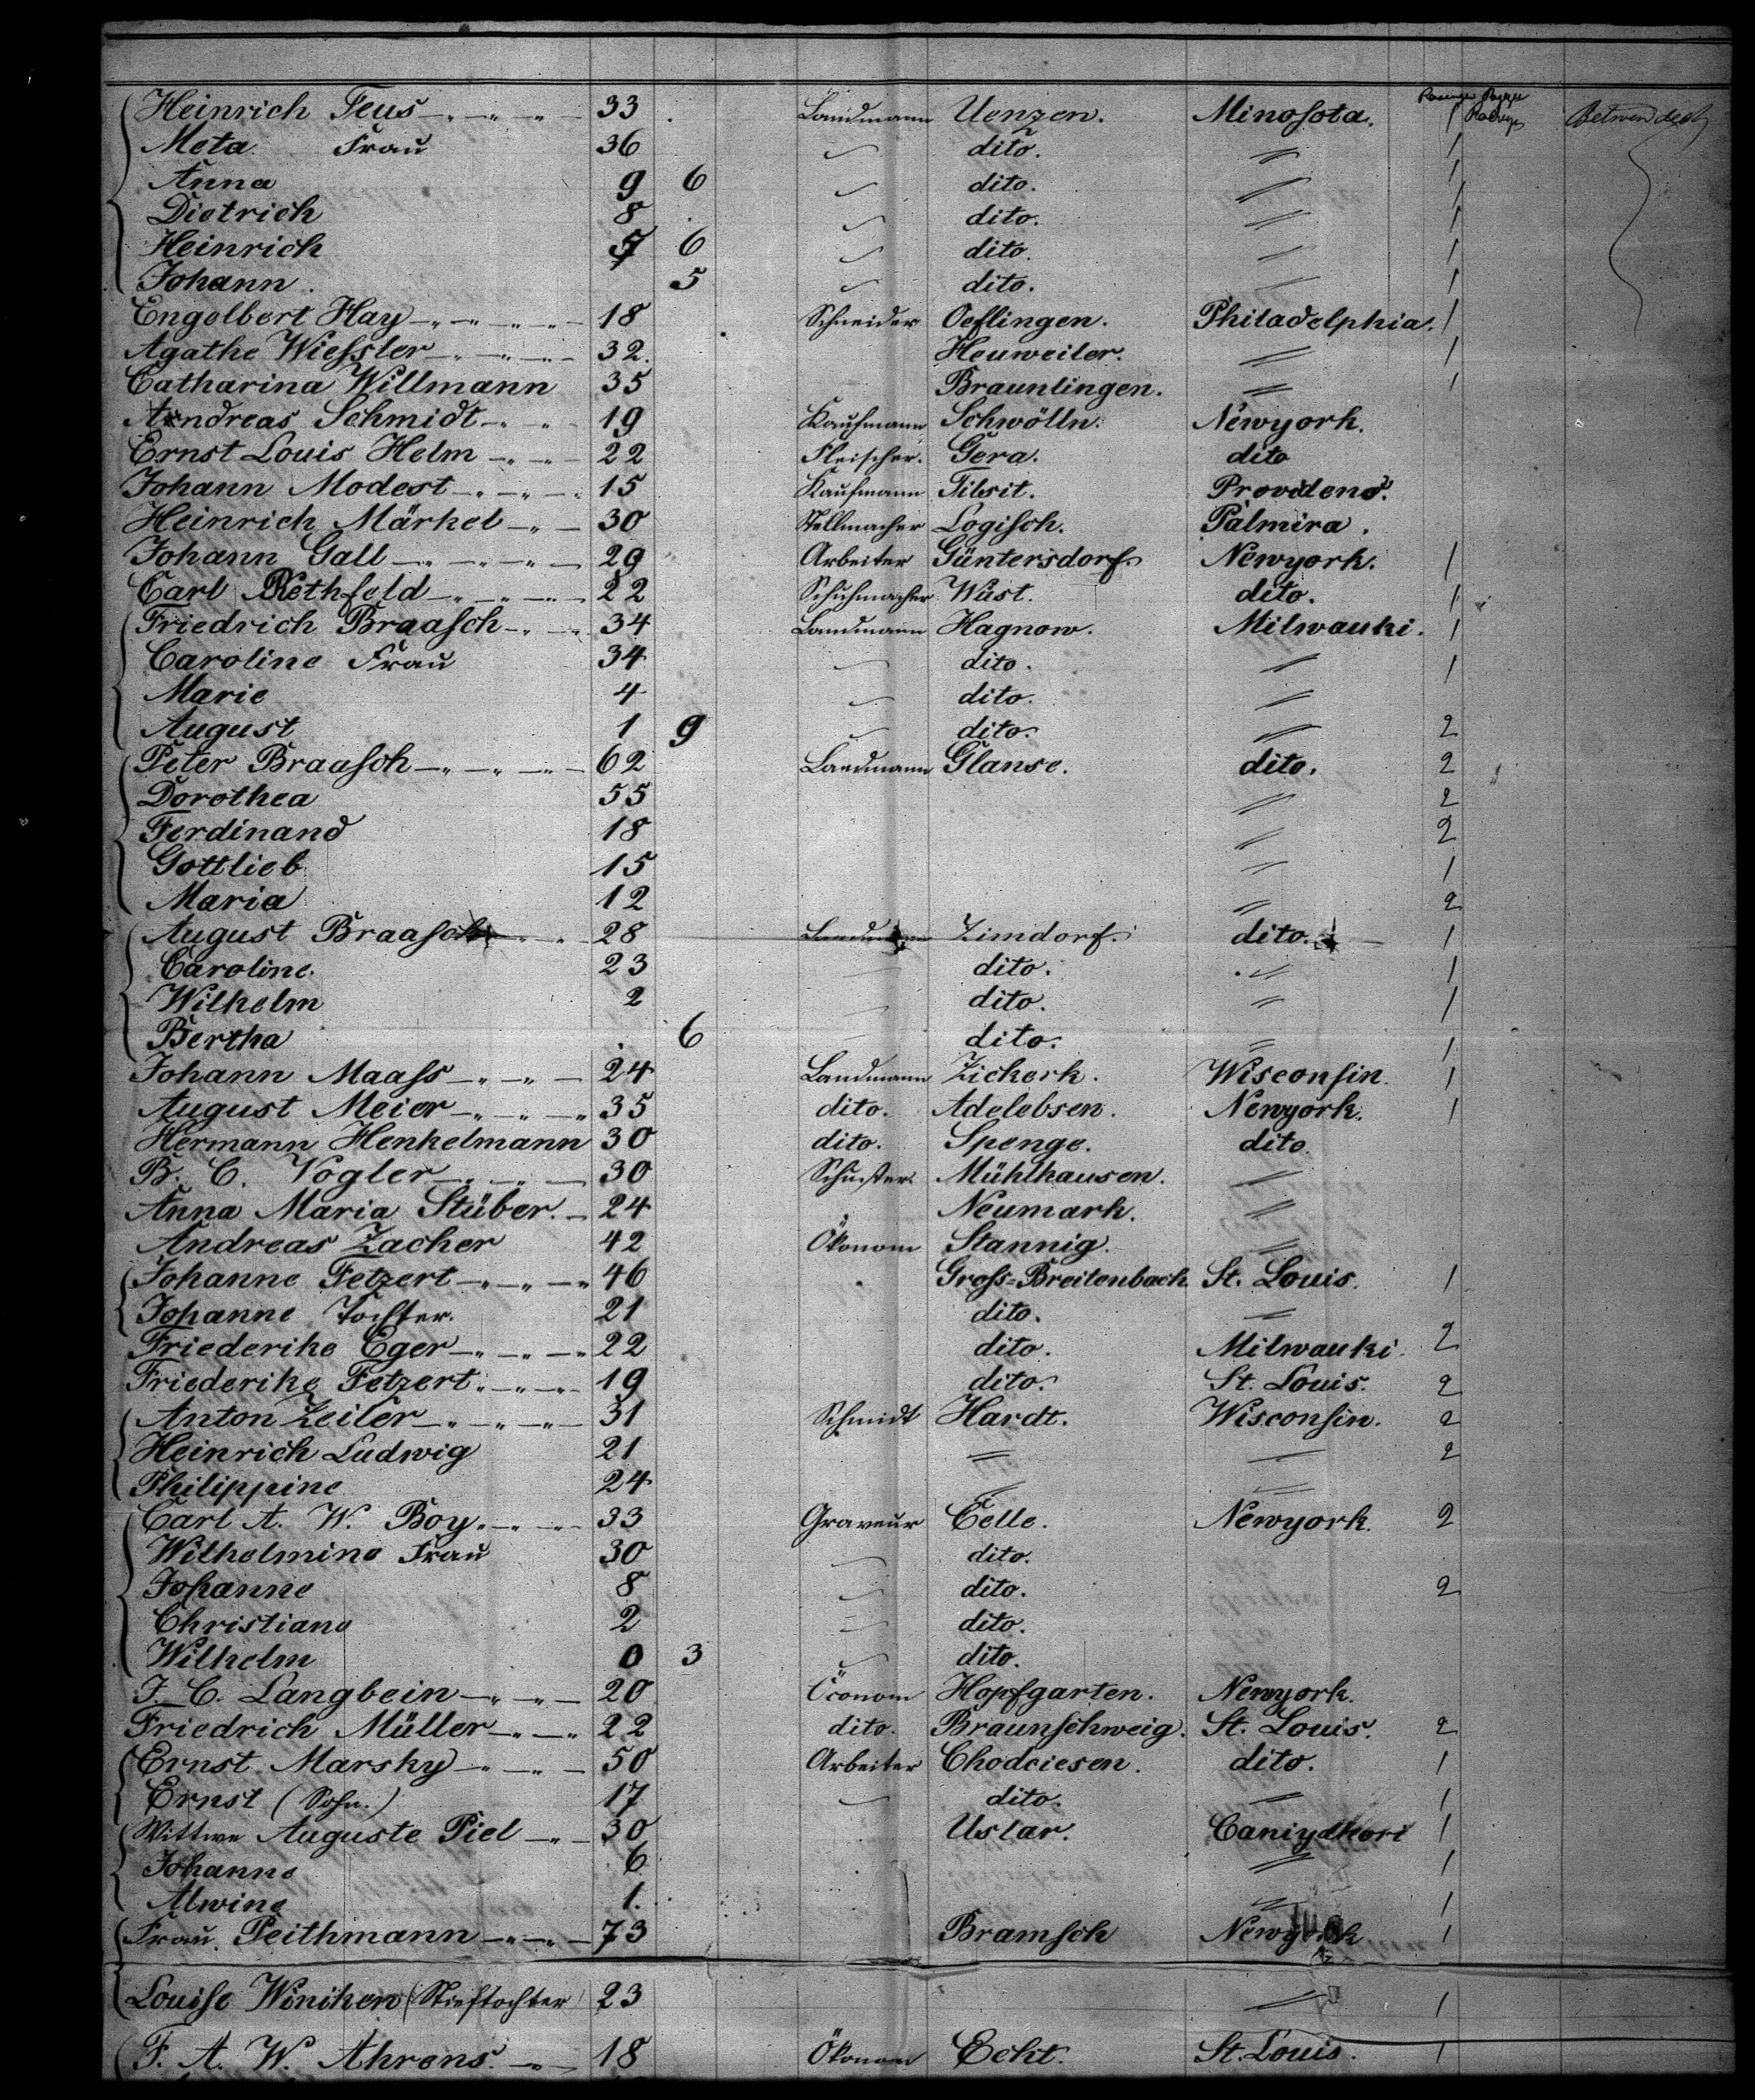 Passengr Bagage
Heinrich Feus -„-„-„- 33 Landmann Uenzen. Minosota. 1 Package Betwen deck
Meta Frau 36 dito. " 1
Anna 9 6 dito. " 1
Dietrich 8 dito. " 1
Heinrich 5 6 dito. " 1
Johann. 5 dito. " 1
Engelbert Hay -„-„-„-„- 18 Schneider Oeflingen. Philadelphia. 1
Agathe Wiessler -„-„-„- 32. Heuweiler. " 1
Catharina Willmann 35 Braunlingen. " 1
Andreas Schmidt -„-„ 19 Kaufmann Schwölln. Newyork.
Ernst Louis Helm -„-„- 22 Fleischer. Gera. dito
Johann Modest -„-„-„ 15 Kaufmann Tilsit. Providenc.
Heinrich Märkel -„- 30 Stellmacher Logisch. Palmira.
Johann Gall -„-„-„- 29 Arbeiter Güntersdorf. Newyork. 1
Carl Rethfeld -„-„-„- 22 Schuhmacher Wüst. dito. 1
Friedrich Braasch -„-„ 34 Landmann Hagnow. Milwauki. 1
Caroline Frau 34 dito. " 1
Marie 4 dito. "
August 1 9 dito. " 2
Peter Braasch -„-„-„- 62 Landmann Glanse. dito. 2
Dorothea 55 " 2
Ferdinand 18 " 2
Gottlieb 15 " 1
Maria 12 " 2
August Braasch 28 Landmann Zimdorf. dito. 1
Caroline. 23 dito. " 1
Wilhelm 2 dito. " 1
Bertha 6 dito. " 1
Johann Maass -„-„- 24 Landmann Zickerk. Wisconsin. 1
August Meier -„-„-„ 35 dito. Adelebsen. Newyork. 1
Hermann Henkelmann 30 dito. Spenge. dito.
B. C. Vogler -„-„- 30 Schuster Mühlhausen. "
Anna Maria Stüber. - 24 Neumark. "
Andreas Zacher 42 Ökonom Stannig. "
Johanne Fetzert -„-„-„ 46 Gross=Breitenbach. St. Louis. 1
Johanne Tochter. 21 dito. "
Friederike Eger -„-„-„ 22 dito. Milwauki. 2
Friederike Fetzert. -„-„- 19 dito. St. Louis. 2
Anton Zeiler -„-„-„- 31 Schmidt Hardt. Wisconsin. 2
Heinrich Ludwig 21 " " 2
Philippine 24 " "
Carl A. W. Boy. -„-„- 33 Graveur Celle. Newyork. 2
Wilhelmine Frau 30 dito.
Johanne 8 dito. 2
Christiane 2 dito.
Wilhelm 0 3 dito.
J. C. Langbein -„-„- 20 Öconom Hopfgarten. Newyork.
Friedrich Müller -„-„ 22 dito. Braunschweig. St. Louis. 2
Ernst Marsky -„-„- 50 Arbeiter Chodciesen. dito. 1
Ernst (Sohn.) 17 dito. " 1
Wittwe Auguste Piel -„- 30 Uslar. 1
Johanne 6 " 1
Alwine 1. " 1
Frau Peithmann -„-„- 73 Bramsch Newyork 1
Louise Winiken (Stieftochter) 23 " 1
F. A. W. Ahrens. -„- 18 Ökonom Echt. St. Louis. 1